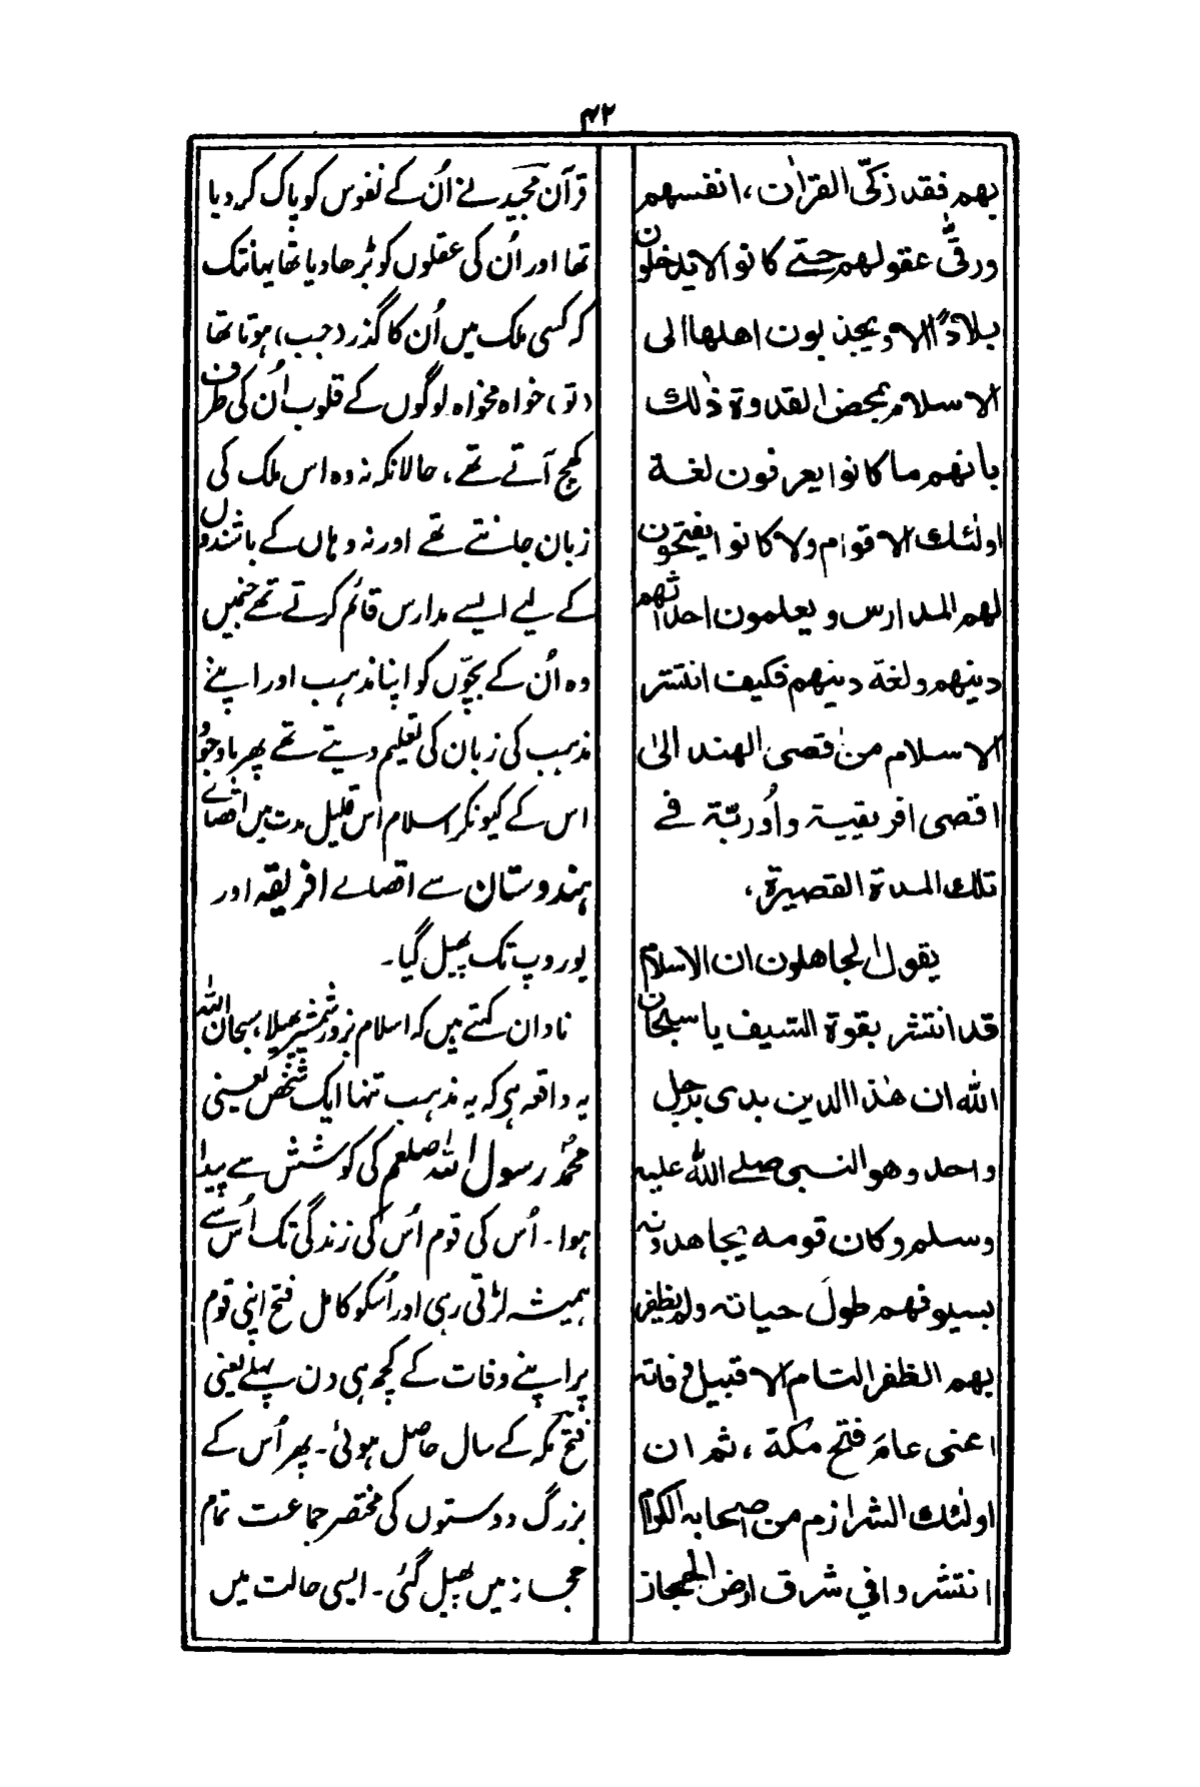 ۴۲
بهم فقد زكّى القران، انفسهم
ورقّى عقولهم حتے كانوا لا يدخلون
بلادًا الا ويجذبون اهلها الى
الاسلام بمحض القدوة ذٰلك
بانهم ما كانوا يعرفون لغة
اولٰئك الاقوام ولا كانوا يفتحون
لهم المدارس و يعلمون احداثهم
دينهم ولغة دينهم فكيف انتشر
الاسلام من اقصى الهند الىٰ
اقصى افريقيية واُوربّة فے
تلك المدة القصيرة،
يقول الجاهلون ان الاسلام
قد انتشر بقوة السّيف يا سبحان
الله ان هٰذا الدين بدى برجل
واحد وهو النبى صلے الله عليه
وسلم وكان قومه يجاهدونه
بسيوفهم طولَ حياته ولم يظفر
بهم الظفر التام الا قبيل وفاته
اعنى عامَ فتح مكة ، ثم ان
اولٰئك الشراذم من اصحابه الكرام
انتشروا في شرق ارض الحجاز
قرآن مجید نے اُن کے نفوس کو پاک کر دیا
تھا اور اُن کی عقلوں کو بڑھا دیا تھا یہانتک
کہ کسی ملک میں اُن کا گذر (جب) ہوتا تھا
(تو) خواہ مخواہ لوگوں کے قلوب اُن کی طرف
کھچ آتے تھے، حالانکہ نہ وہ اس ملک کی
زبان جانتے تھے اور نہ وہاں کے باشندوں
کے لیے ایسے مدارس قائم کرتے تھے جنمیں
وہ اُن کے بچّوں کو اپنا مذہب اور اپنے
مذہب کی زبان کی تعلیم دیتے تھے پھر باوجود
اس کے کیونکر اسلام اس قلیل مدت میں اقصائے
ہندوستان سے اقصاے افریقہ اور
یوروپ تک پھیل گیا۔
نادان کہتے ہیں کہ اسلام بزور شمشیر پھیلا، سبحان اللہ
یہ واقعہ ہی کہ یہ مذہب تنہا ایک شخص یعنی
محمدؐ رسول اللہ صلعم کی کوشش سے پیدا
ہوا۔ اُس کی قوم اُس کی زندگی تک اُس سے
ہمیشہ لڑتی رہی اور اُسکو کامل فتح اپنی قوم
پر اپنے وفات کے کچھ ہی دن پہلے یعنی
فتح مکہ کے سال حاصل ہوئی۔ پھر اُس کے
بزرگ دوستوں کی مختصر جماعت تمام
حجاز میں پھیل گئی۔ ایسی حالت میں